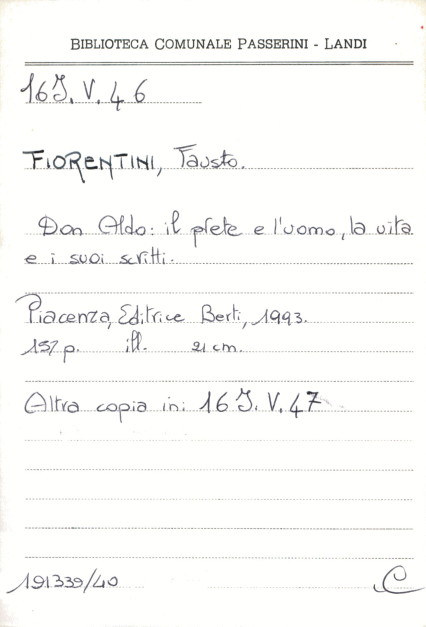 BIBLIOTECA COMUNALE PASSERINI - LANDI
16J. V. 46
FIORENTINI, Fausto.
Don Aldo: il prete e l'uomo, la vita
e i suoi scritti.
Piacenza, Editrice Berti, 1993.
157 p. ill. 21 cm.
Altra copia in: 16 J. V. 47
191339/40
C